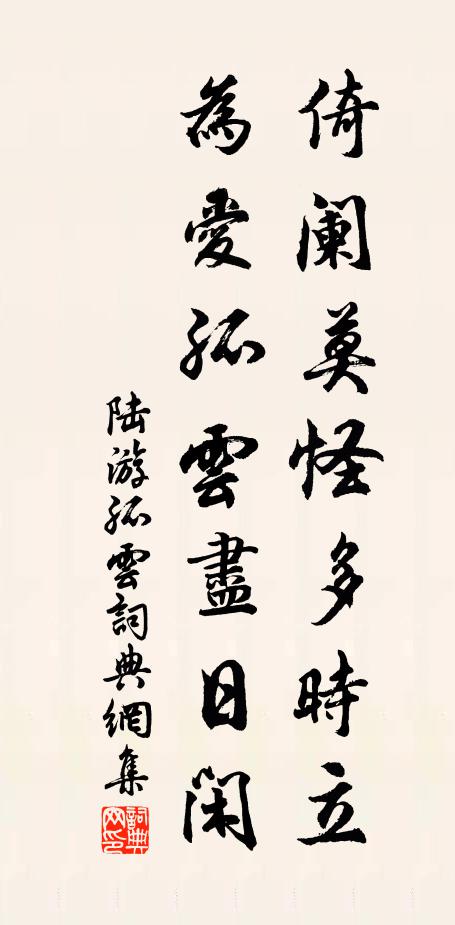 倚阑莫怪多時立
為愛孤雲盡日闲
陆游孤雲詞典網集
詞典網印